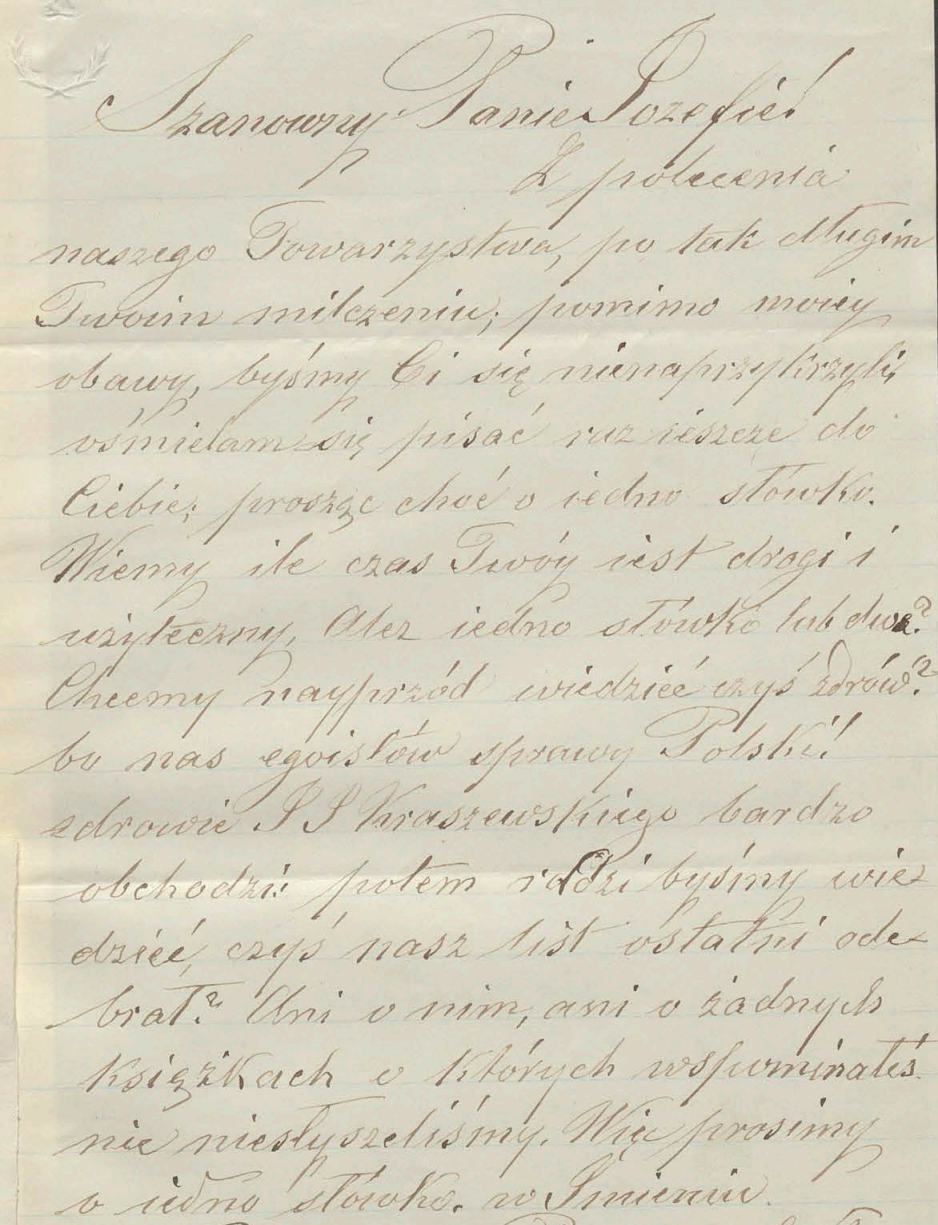 Szanowny Panie Jozefie!
Z polecenia
naszego Towarzystwa, po tak długim
Twoim milczeniu; pomimo moiey
obawy, byśmy Ci się nienaprzykrzyli,
ośmielam się pisać raz ieszcze do
Ciebie; prosząc choć o iedno słówko.
Wiemy ile czas Twóy iest drogi i
użyteczny, Alez iedno słówko lub dwa?
Chcemy nayprzód wiedzieć czyś zdrów?
bo nas egoistów sprawy Polski!
zdrowie J J Kraszewskiego bardzo
obchodzi: potem radzi byśmy wie-
dzieć, czyś nasz list ostatni ode-
brał? Ani o nim, ani o żadnych
książkach o których wspominałeś
nic niesłyszeliśmy. Więc prosimy
o iedno słówko. w Imieniu